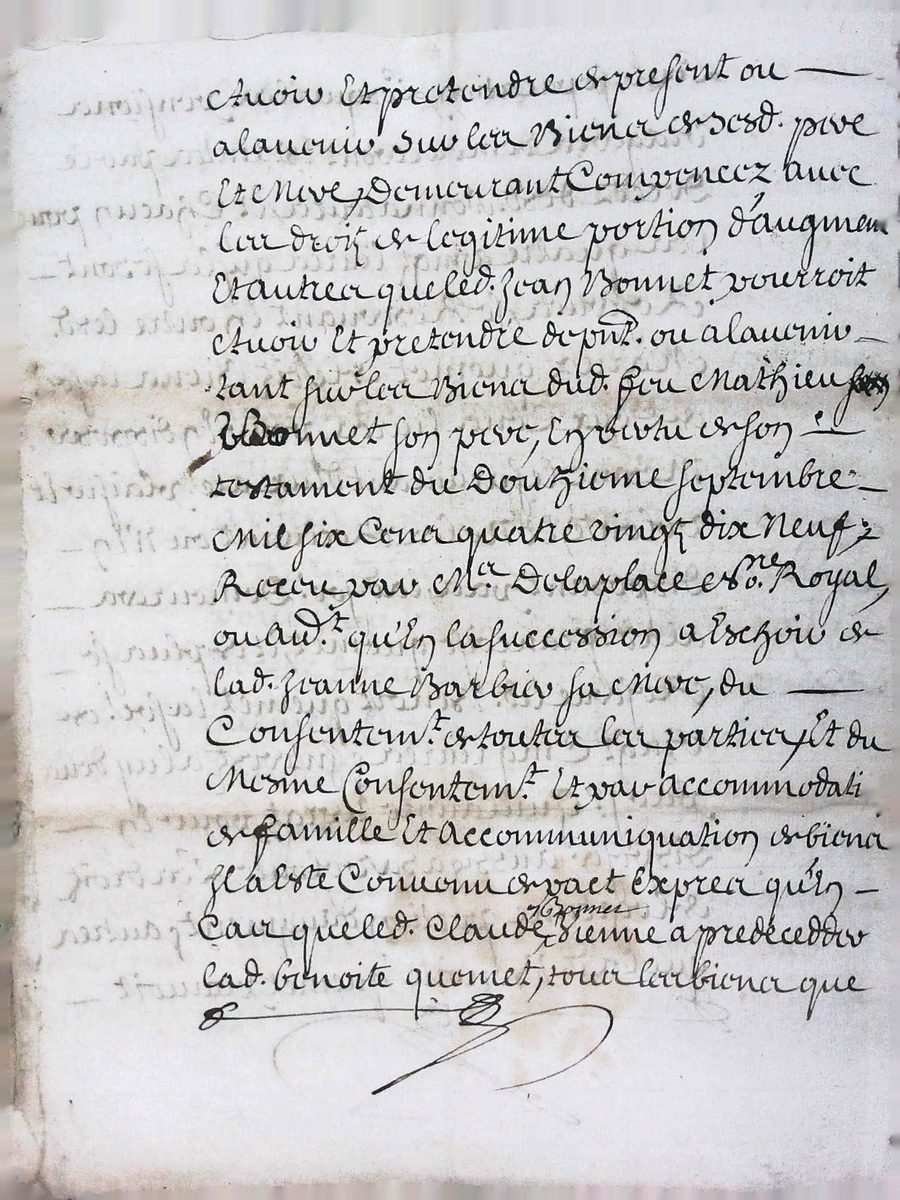 Avoir Et pretendre de present ou
alavenir Sur les Biens de sesd. pere
Et Mere, Demeurant Compencez avec
les droitz de legitime portion d'augmen
Et autres queled. Jean Bonnet pourroit
Avoir Et pretendre depnt. ou alavenir
tant sur les Biens dud. feu Mathieu
Bonnet son pere, En vertu de son
testament du Douzieme septembre
Mil six Cens quatre vingtz dix Neuf
Receu par Me. Delaplace Royal,
ou aud.t qu'En la succession a Eschoir de
lad. Jeanne Barbier sa Mere, du
Consentem.t de toutes les parties, Et du
Mesme Consentem.t Et par accommodati
de famille Et accommuniquation de biens
Il a Esté Convenu de pact Expres qu'En
Cas queled. Claude Bonnet vienne a predecedder
lad. benoite quemet, tous les biens que